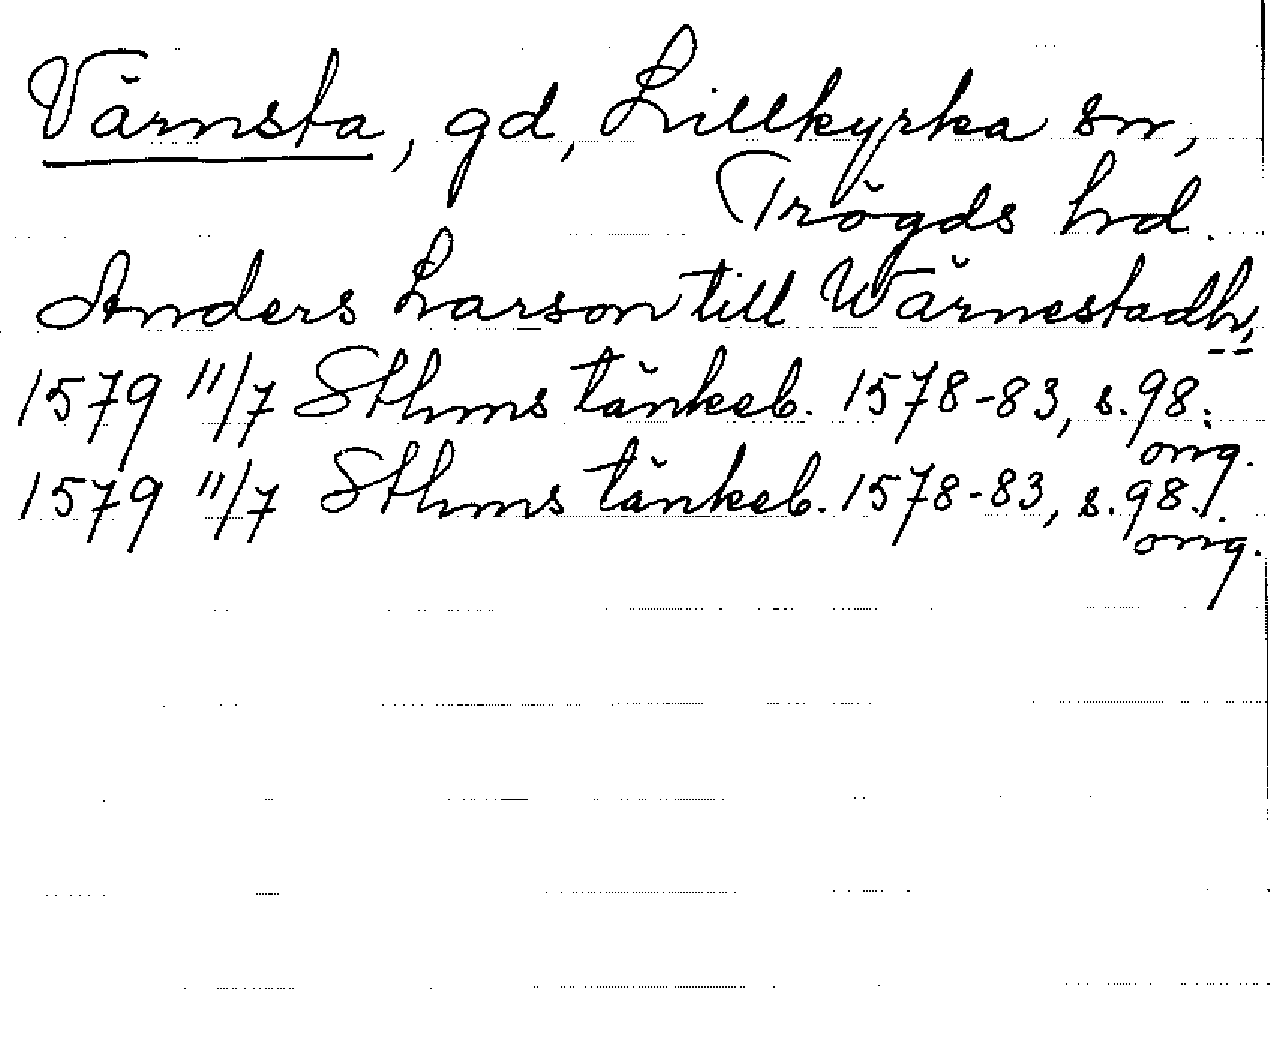 Värnsta, gd, Lillkyrka sn,
Trögds hd.
Anders Larson till Wärnestadh,
1579 11/7 Sthms tänkeb. 1578-83, s. 98.
orig.
1579 11/7 Sthms tänkeb. 1578-83, s. 98.
orig.